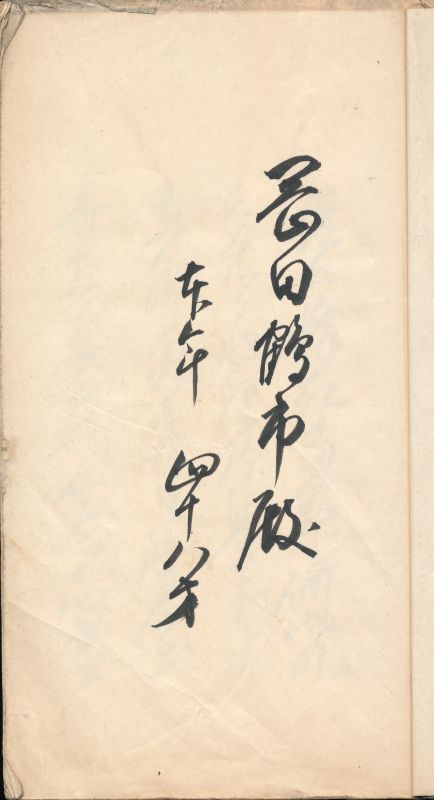 岡田鶴市殿
本年 四十八才